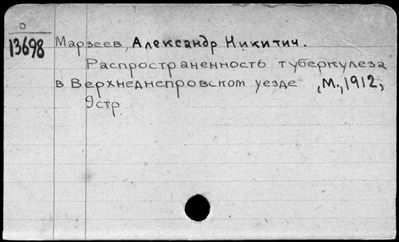 0
13698
Марзеев, Александр Никитич.
Распространенность туберкулеза
в Верхнеднепровском уезде, М., 1912,
9стр